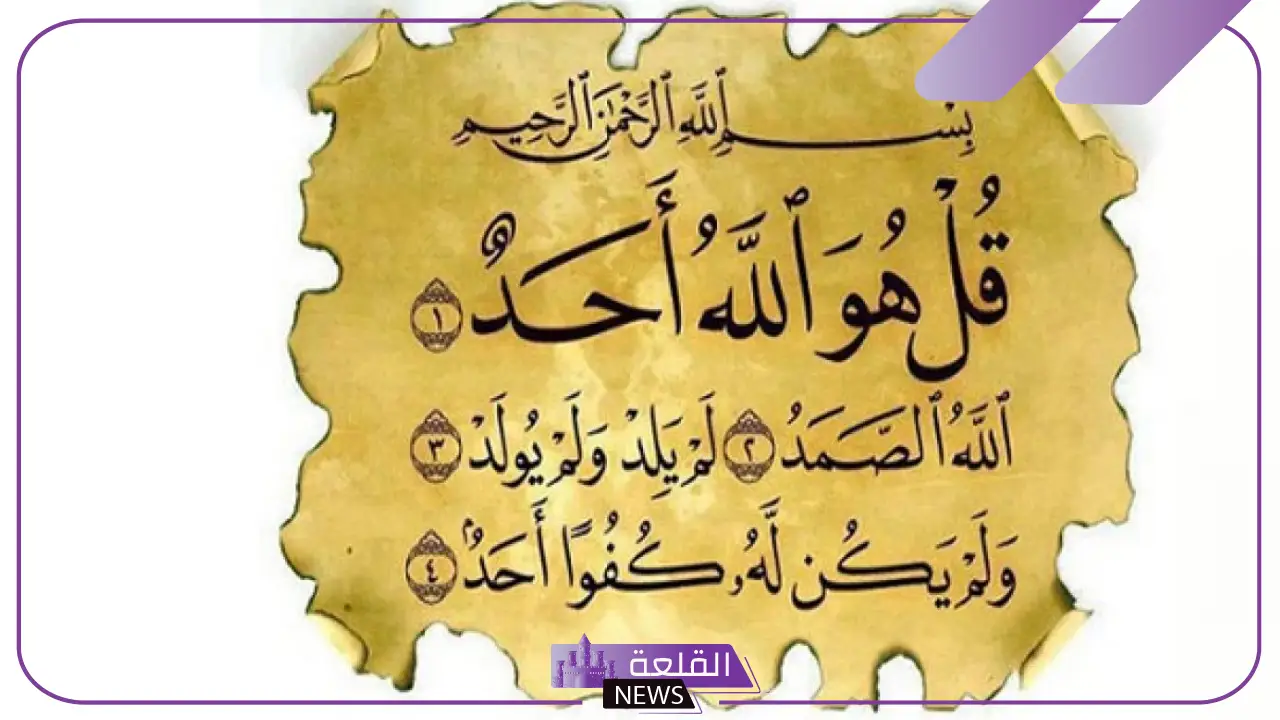 بِسْمِ ٱللَّهِ ٱلرَّحْمَٰنِ ٱلرَّحِيمِ
قُلْ هُوَ ٱللَّهُ أَحَدٌ ١
ٱللَّهُ ٱلصَّمَدُ ٢ لَمْ يَلِدْ وَلَمْ يُولَدْ ٣
وَلَمْ يَكُن لَّهُۥ كُفُوًا أَحَدٌۢ ٤
القلعة
NEWS